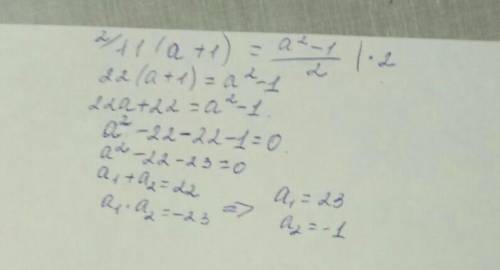 ²/11(a+1) = (a²-1)/2 | · 2
22(a+1) = a²-1
22a+22 = a²-1.
a²-22-22-1=0.
a²-22-23=0
a₁+a₂=22
a₁·a₂=-23 => a₁=23
a₂=-1